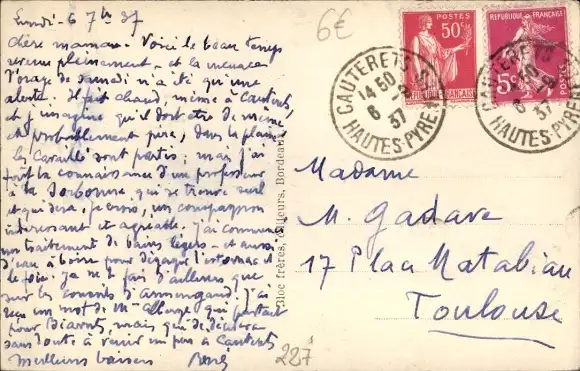 Lundi - 6 7bre 37
6€
chère maman - Voici le beau temps
revenu pleinement - et la menace
d'orage de samedi n'a été qu'une
alerte. Il fait chaud, même à Cauterets,
et j'imagine qu'il doit être de même
et probablement pire, dans la plaine
les sont partis ; mais j'ai
fait la connaissance d'un professeur
à la Sorbonne qui se trouve seul
et qui sera, je crois, un compagnon
intéressant et agréable. J'ai commencé
mon traitement de bains légers - et aussi
d'eau à boire pour dégager l'estomac et
le foie. Je ne fais d'ailleurs que
sur les conseils d'Armengaud. J'ai
reçu un mot de Mr qui partait
pour Biarritz, mais qui se décidera
sans doute à venir un peu à Cauterets
Meilleurs baisers René
Bloc frères, Bordeaux
POSTES
50c
RÉPUBLIQUE FRANÇAISE
RÉPUBLIQUE FRANÇAISE
5c
POSTES
CAUTERETS
14 50
6 - 9
37
HAUTES-PYRÉNÉES
CAUTERETS
37
HAUTES-PYRÉNÉES
Madame
M. Gadave
17 Place Matabiau
Toulouse
227